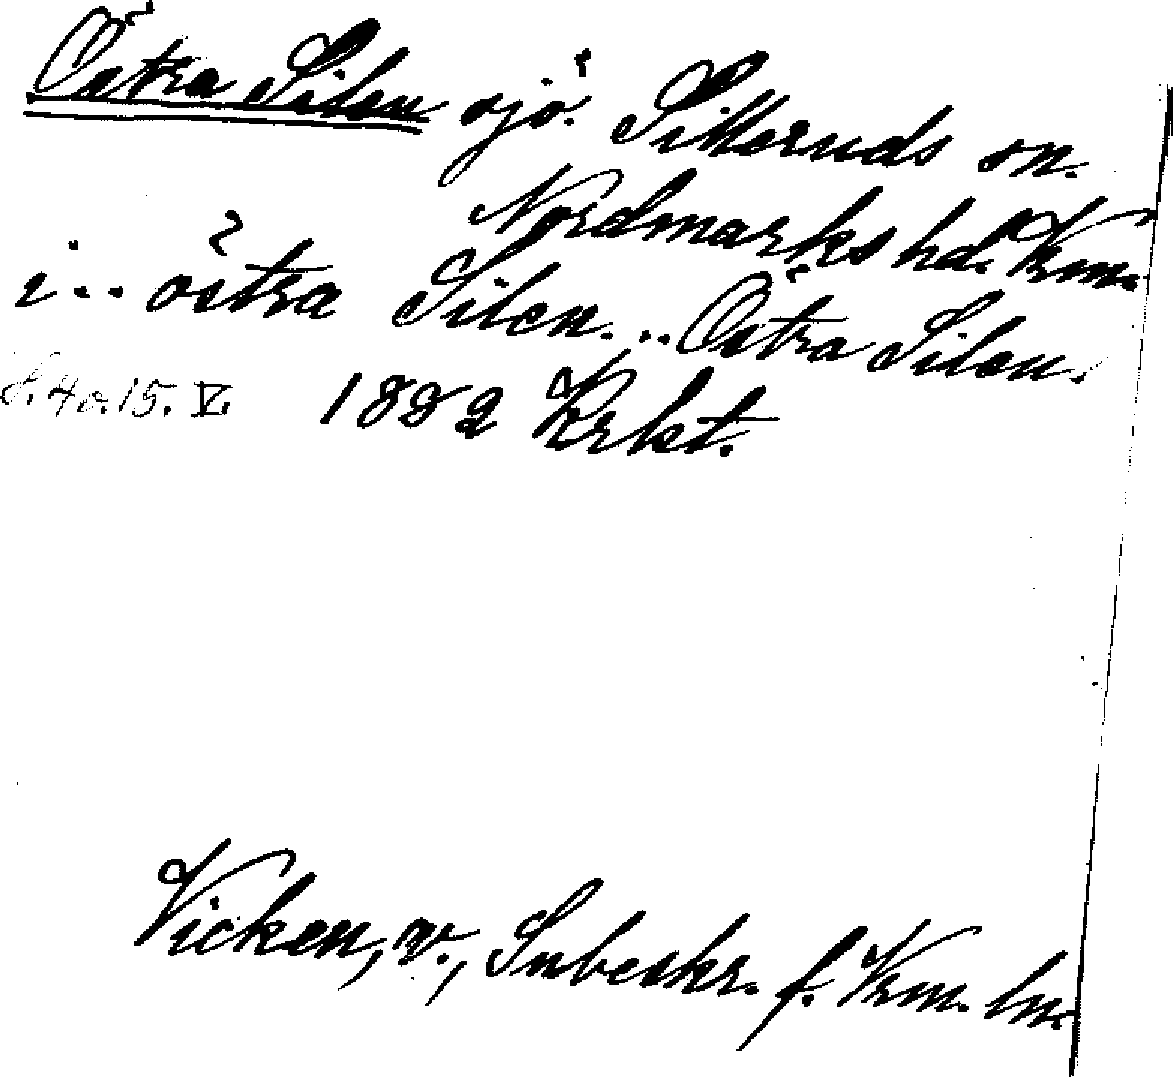 Östra Silen sjö. Silleruds sn.
Nordmarks hd. Vrm.
i .. östra Silen... Östra Silen.
S. 40. 15. V. 1882 Krkt.
Vicken, v., Snbeskr. f. Vrm. ln.